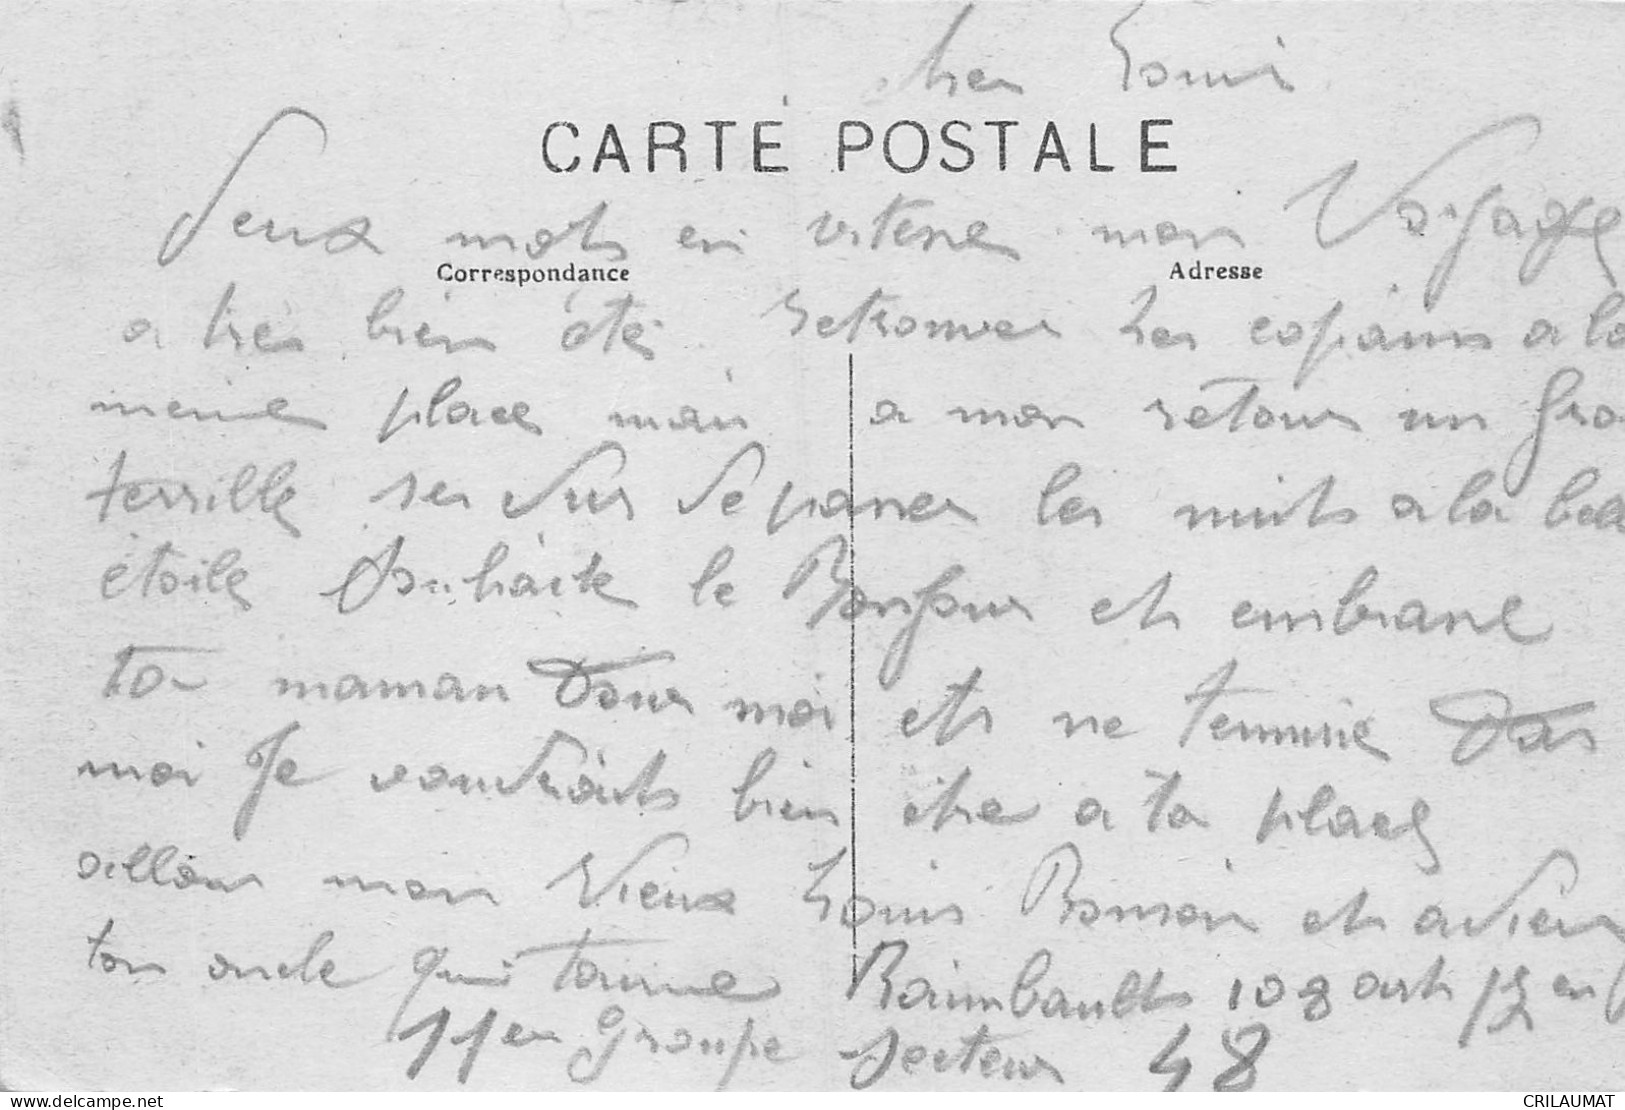 cher Louis
CARTE POSTALE
deux mots en vitesse mon Voyage
Correspondance
Adresse
a tres bien été retrouver les copains a la
meme place mais a mon retour un gro
terrible ses dur de passer les nuits a la belle
étoile souhaite le Bonjour et embrasse
ta maman pour moi et ne termine pas
moi Je voudrais bien etre a ta place
allons mon Vieux Louis Bonsoir et
ton oncle qui taime Raimbault 108 art
11em Groupe secteur 48
CRILAUMAT